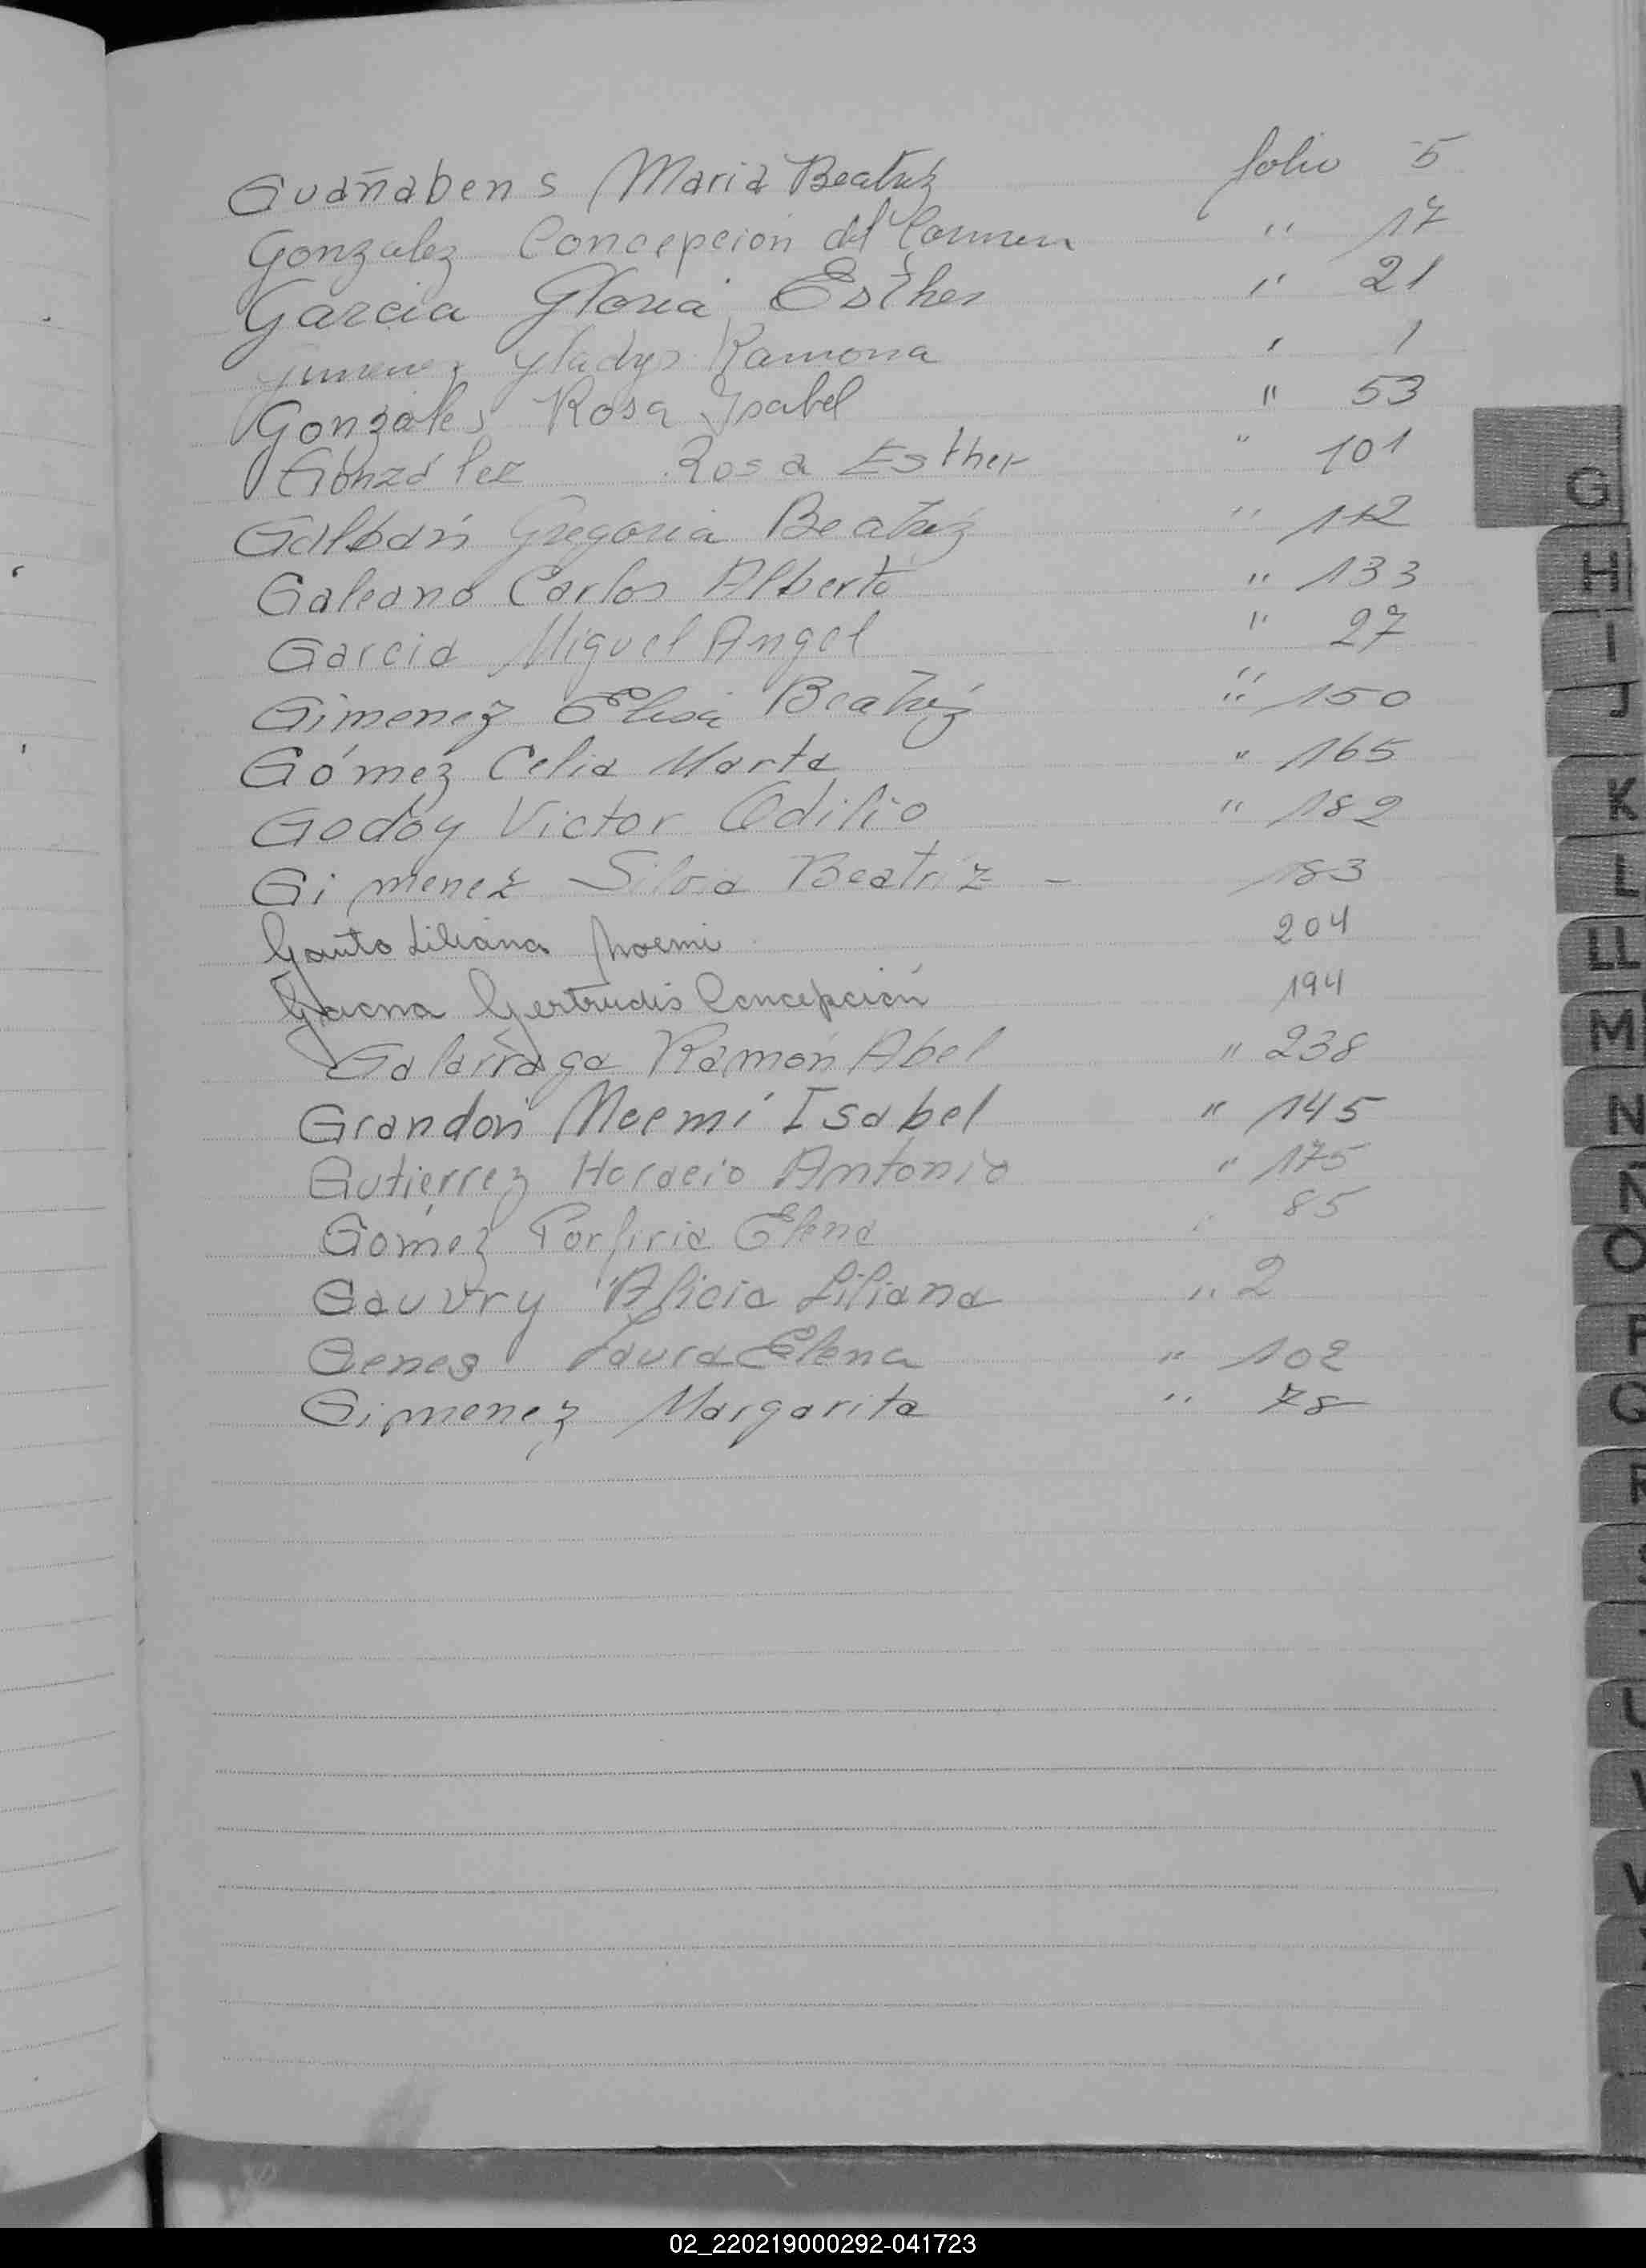 Guañabens Maria Beatriz folio 5
Gonzalez Concepcion del Carmen " 17
Garcia Gloria Esther " 21
Gimenez Gladys Ramona " 1
Gonzales Rosa Ysabel " 53
González Rosa Esther " 101
Galbán Gregoria Beatriz " 112
Galeano Carlos Alberto " 133
Garcia Miguel Angel " 27
Gimenez Elisa Beatriz " 150
Gómez Celia Marta " 165
Godoy Victor Odilio " 182
Gimenez Silvia Beatriz - 183
Gauto Liliana Noemi 204
Gaona Gertrudis Concepción 194
Galarraga Ramón Abel " 238
Grandon Noemí Isabel " 145
Gutierrez Horacio Antonio " 175
Gomez Porfiria Elena " 85
Gauvry Alicia Liliana " 2
Genes Laura Elena " 102
Gimenez Margarita " 78
G
H
I
J
K
L
LL
M
N
Ñ
O
P
Q
R
U
V
02_220219000292-041723